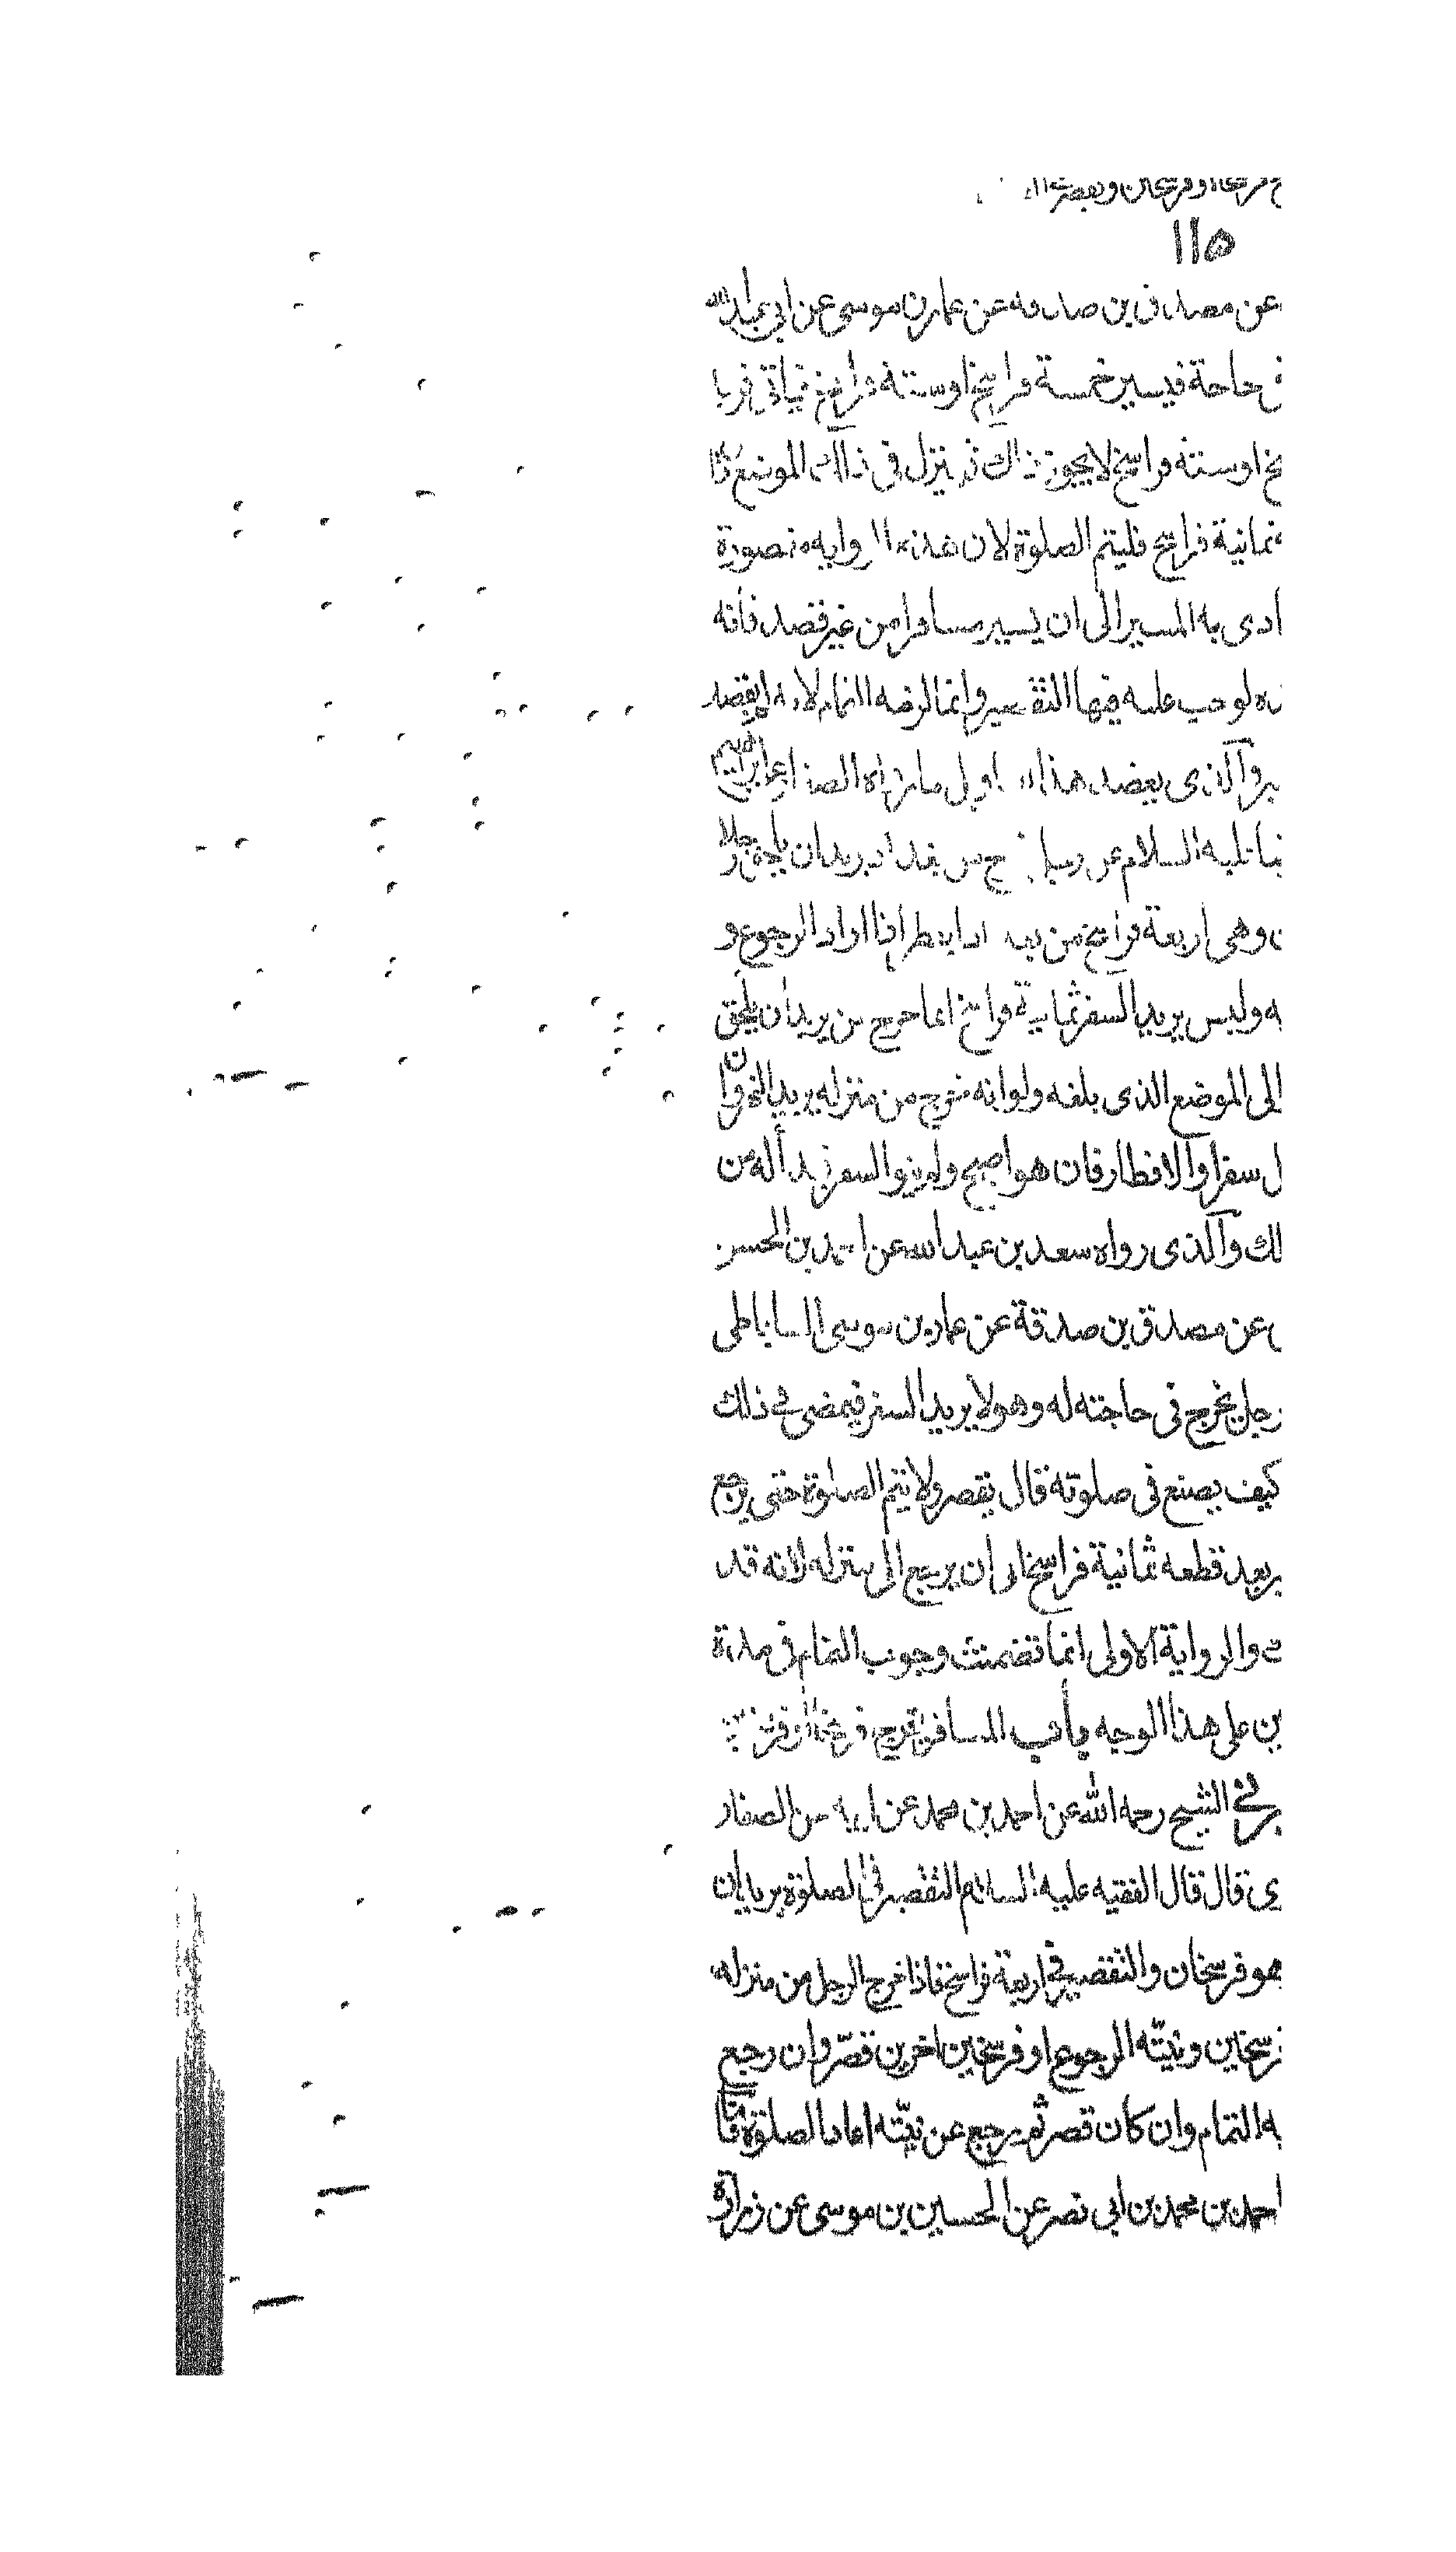 فرسخا او فرسخين ويقصر
١١٥
عن مصدق بن صدقه عن عمار بن موسى عن ابي عبد الله
حاجة فيسير خمسة فراسخ اوستة فراسخ فياتى قرية
اوستة فراسخ لا يجوز ذلك ثم ينزل فى ذلك الموضع
ثمانية فراسخ فليتم الصلوة لان هذه الرواية مقصورة
ادى به المسير الى ان يسير مسافرا من غير قصد فانه
لو وجب عليه فيها التقصير وانما لزمه التمام لانه لم يقصد
والذى يعضد هذا التاويل ما رواه الصفار عن ابراهيم
عليه السلام عن رجل خرج من بغداد يريدان يلحق رجلا
وهى اربعة فراسخ من بغداد ايفطر اذا اراد الرجوع و
وليس يريد السفر ثمانية فراسخ انما خرج من يريد ان يلحق
الى الموضع الذى بلغه ولو انه خرج من منزله يريد النهروان
سفرا والافطار فان هو اصبح ولم ينو السفر فبدأ له من
والذى رواه سعد بن عبد الله عن احمد بن الحسن
عن مصدق بن صدقة عن عمار بن موسى الساباطى
رجل يخرج فى حاجته له وهو لا يريد السفر فيمضى فى ذلك
كيف يصنع فى صلوته قال يقصر ولا يتم الصلوة حتى يرجع
بعد قطعه ثمانية فراسخ الى ان يرجع الى منزله لانه قد
والرواية الاولى انما تضمنت وجوب التمام فى مدة
على هذا الوجه باب المسافر يخرج فرسخا او فرسخين
الشيخ رحمه الله عن احمد بن محمد عن ابيه عن الصفار
قال قال الفقيه عليه السلام التقصير فى الصلوة بريدان
هو فرسخان والتقصير فى اربعة فراسخ فاذا خرج الرجل من منزله
فرسخين ونيته الرجوع او فرسخين اخرين قصّر وان رجع
التمام وان كان قصر ثم رجع عن نيّته اعاد الصلوة فأما
احمد بن محمد بن ابى نصر عن الحسين بن موسى عن زرارة